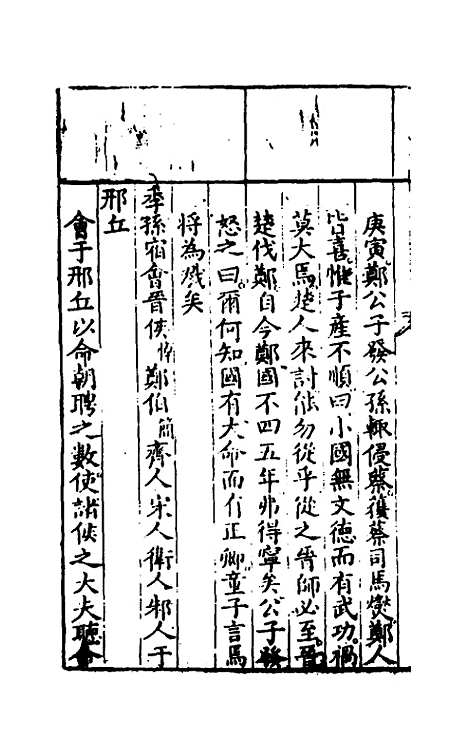 庚寅鄭公子發公孫輒侵蔡獲蔡司馬燮鄭人
皆喜惟子產不順曰小國無文德而有武功禍
莫大焉楚人來討能勿從乎從之晉師必至晉
楚伐鄭自今鄭國不四五年弗得寧矣公子發
怒之曰爾何知國有大命而有正卿童子言焉
將為戮矣
季孫宿會晉侯悼鄭伯簡齊人宋人衛人邾人于
邢丘
會于邢丘以命朝聘之數使諸侯之大夫聽命